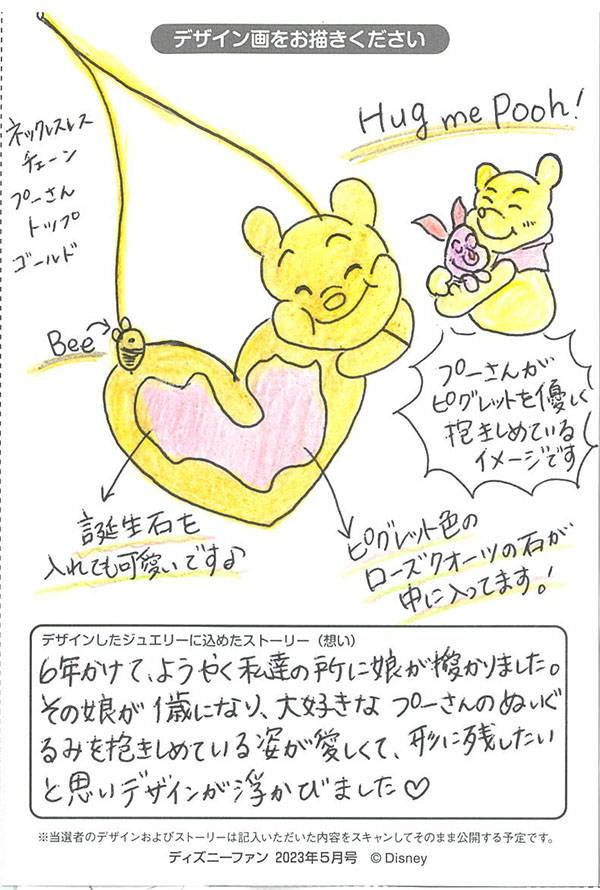 デザイン画をお描きください
Hug me Pooh!
ネックレスレス
チェーン
プーさん
トップ
ゴールド
Bee
プーさんが
ピグレットを優しく
抱きしめている
イメージです
誕生石を
入れても可愛いです♪
ピグレット色の
ローズクオーツの石が
中に入ってます!
デザインしたジュエリーに込めたストーリー（想い）
6年かけて、ようやく私達の所に娘が授かりました。
その娘が1歳になり、大好きなプーさんのぬいぐ
るみを抱きしめている姿が愛しくて、形に残したい
と思いデザインが浮かびました♡
※当選者のデザインおよびストーリーは記入いただいた内容をスキャンしてそのまま公開する予定です。
ディズニーファン 2023年5月号 ©Disney